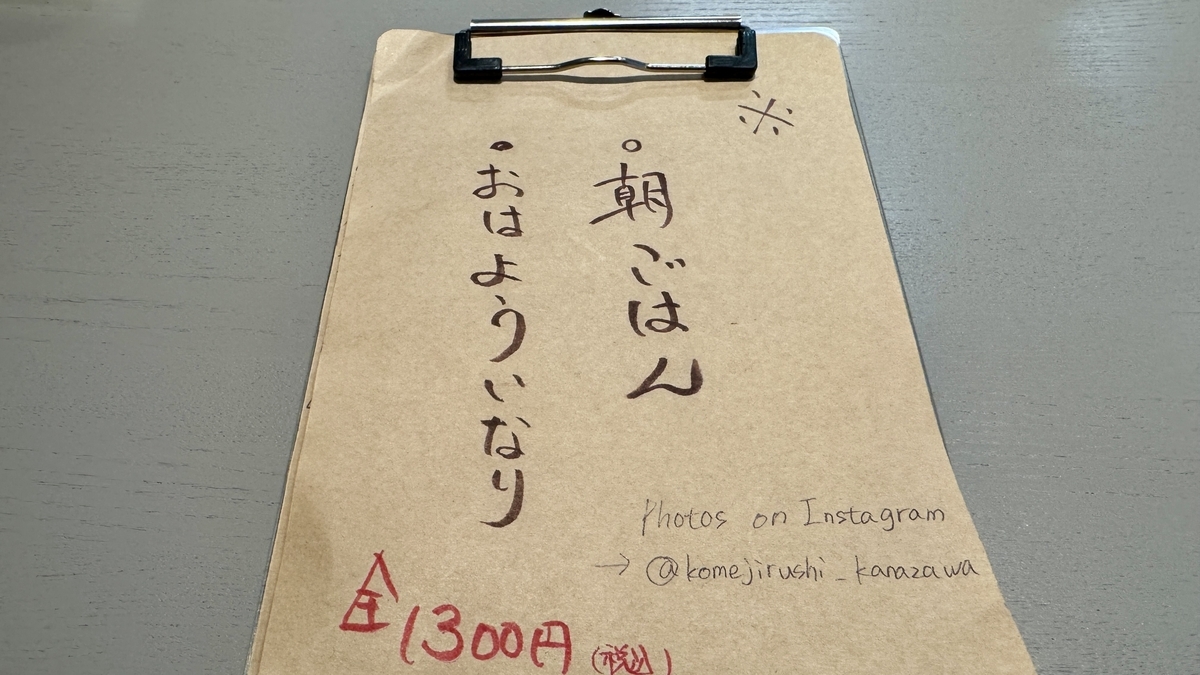 ※
○朝ごはん
・おはよういなり
Photos on Instagram
→ @komejirushi_kanazawa
全1300円(税込)